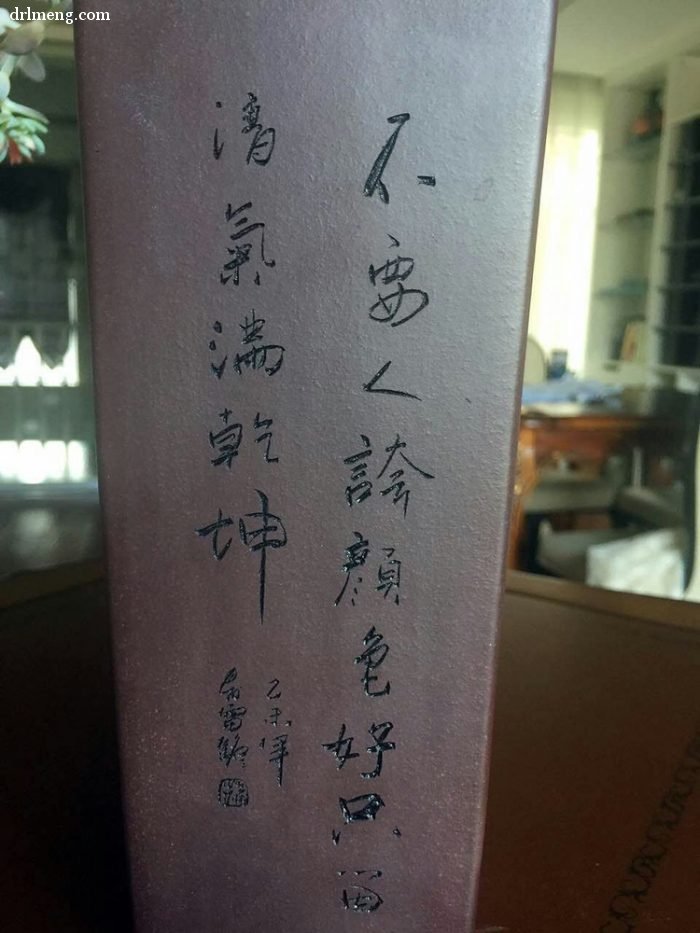 drlmeng.com
不要人誇顏色好只留
清氣滿乾坤
乙未年